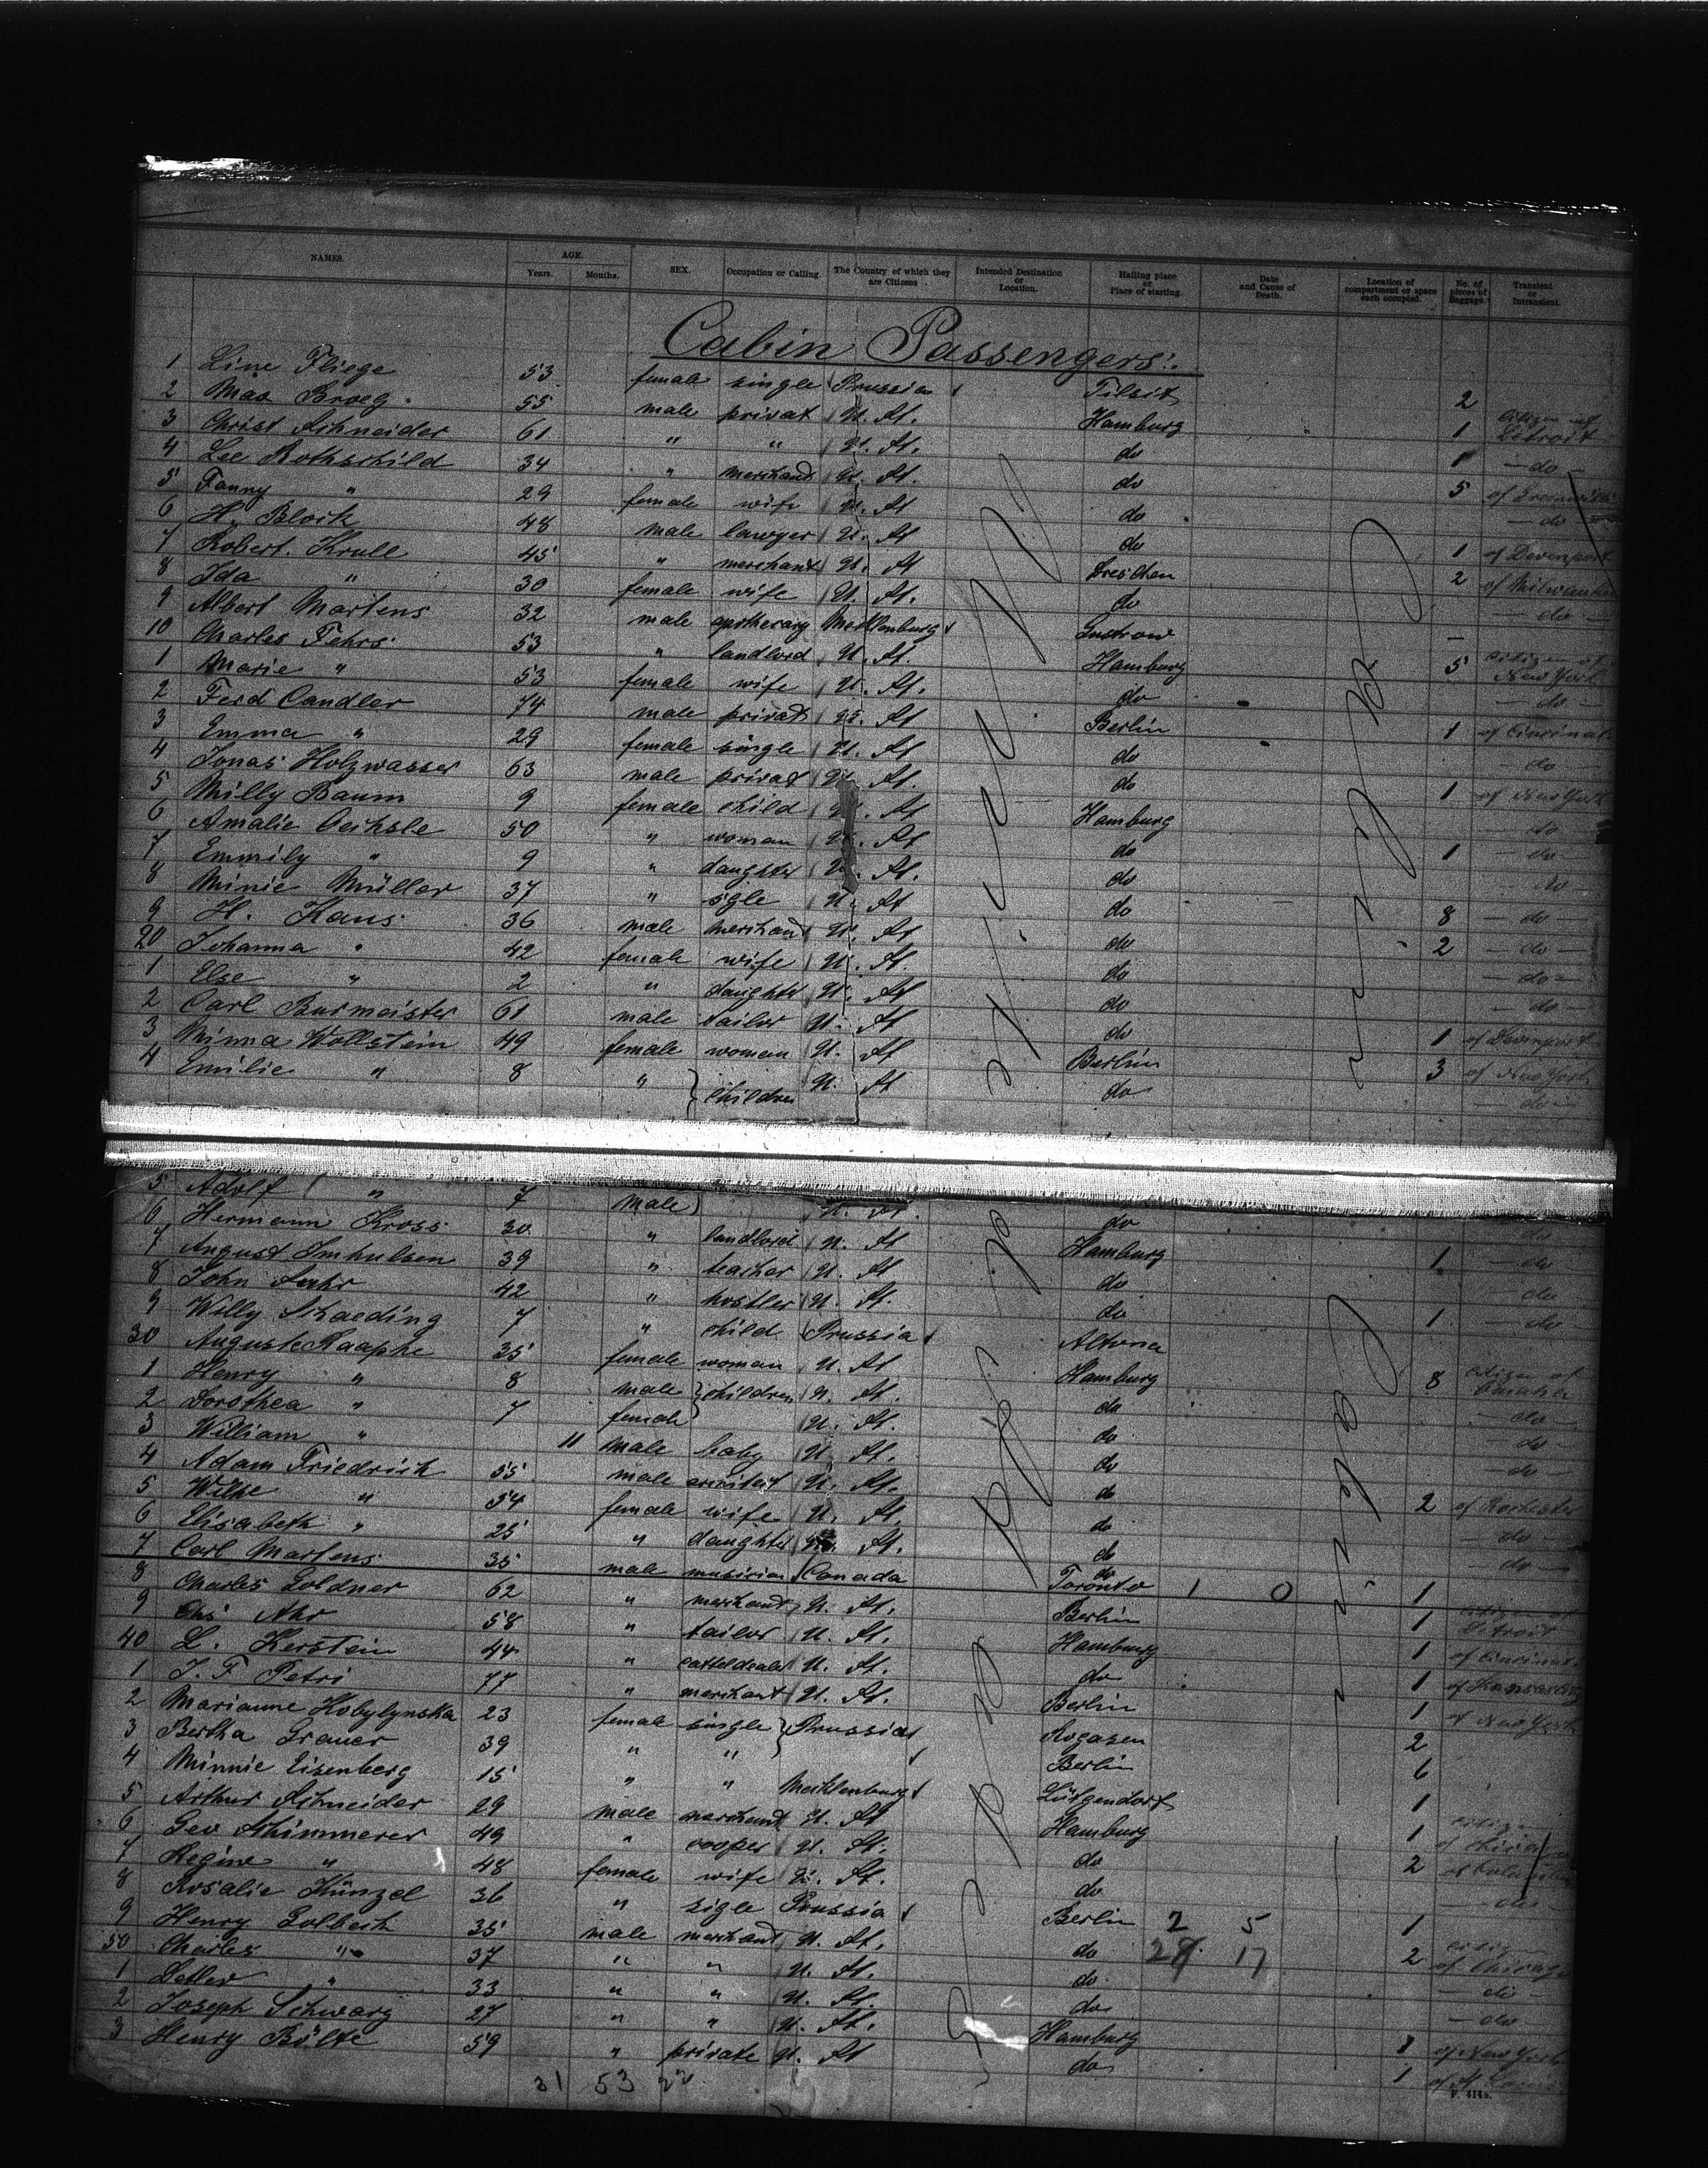 NAMES. AGE. Years. Months. SEX. Occupation or Calling. The Country of which they are Citizens Intended Destination or Location. Hailing place or Place of starting. Date and Cause of Death. Location of compartment or space each occupied. No. of pieces of Baggage. Transient or Intransient.
Cabin Passengers:
1 Line Fliege 53 female single Prussia Tilsit 2
2 Max Broeg 55 male privat U. St. Hamburg 1 citizen of Detroit
3 Christ Schneider 61 " " U. St. do 1 - do -
4 Lee Rothschild 34 " merchand U. St. do 5 of
5 Fanny " 29 female wife U. St do - do -
6 H. Block 48 male lawyer U. St do 1 of Devenport
7 Robert Krull 45 " merchant U. St Dresden 2 of Milwaukee
8 Ida " 30 female wife U. St. do - do -
9 Albert Martens 32 male apothecary Mecklenburg Gustrow -
10 Charles Fehrs 53 " landlord U. St. Hamburg 5 citizen of New York
1 Marie " 53 female wife U. St. do - do -
2 Ferd Candler 74 male privat U. St Berlin 1 of Cincinnat.
3 Emma " 29 female single U. St do - do -
4 Jonas Holzwasser 63 male privat U. St. do 1 of New York
5 Milly Baum 9 female child U. St Hamburg - do -
6 Amalie Oechsle 50 " woman U. St do 1 - do -
7 Emmily " 9 " daughter U. St. do - do -
8 Minie Müller 37 " sgle U. St do 8 - do -
9 H. Kaus 36 male merchand U. St do 2 - do -
20 Johanna " 42 female wife U. St. do - do -
1 Else " 2 " daughter U. St do - do -
2 Carl Burmeister 61 male tailor U. St do 1 of Devenport
3 Minna Wollstein 49 female woman U. St Berlin 3 of New York
4 Emilie " 8 " children U. St do - do -
5 Adolf " 7 male U. St. do - do -
6 Hermann Kross 30 " landlord U. St Hamburg 1 - do -
7 August Imhulsen 39 " teacher U. St do - do -
8 John Suhr 42 " hostler U. St. do 1 - do -
9 Willy Schaeding 7 " child Prussia Altona
30 Auguste Raaphe 35 female woman U. St Hamburg 8 citizen of Omaha
1 Henry " 8 male children U. St. do - do
2 Dorothea " 7 female U. St. do do
3 William " 11 male baby U. St. do - do
4 Adam Friedrich 55 male U. St. do 2 of Rochester
5 Wilhe " 54 female wife U. St. do - do -
6 Elisabeth " 25 " daughter U. St. do - do -
7 Carl Martens 35 male musician Canada do Toronto 1 0 1
8 Charles Goldner 62 " merchant U. St. Berlin 1 citizen of Detroit
9 Chs Ahr 58 " tailor U. St. Hamburg 1 of Cincinnat.
40 L. Kerstein 44 " catteldealer U. St. do 1 of Kansas City
1 J. F. Petri 77 " merchant U. St. Berlin 1 of New York
2 Marianne Kobylynska 23 female single Prussia Rogasen 2
3 Bertha Gramer 39 " " Berlin 6
4 Minnie Eisenberg 15 " " Mecklenburg Lütgendorf 1
5 Arthur Schneider 29 male merchand U. St Hamburg 1 citizen of Chicago
6 Geo Schimmerer 49 " cooper U. St. do 2 of
7 Regine " 48 female wife U. St. do - do -
8 Rosalie Künzel 36 " sigle Prussia Berlin 2 5 1
9 Henry Golbeck 35 male merchand U. St. do 28 17 2 citizen of Chicago
50 Charles " 37 " " U. St. do - do -
1 Detlev " 33 " " U. St. do - do -
2 Joseph Schwarz 27 " " U. St. Hamburg 1 of New York
3 Henry Bölte 59 " private U. St do 1 of St. Louis
31 53 22
F. 414a.